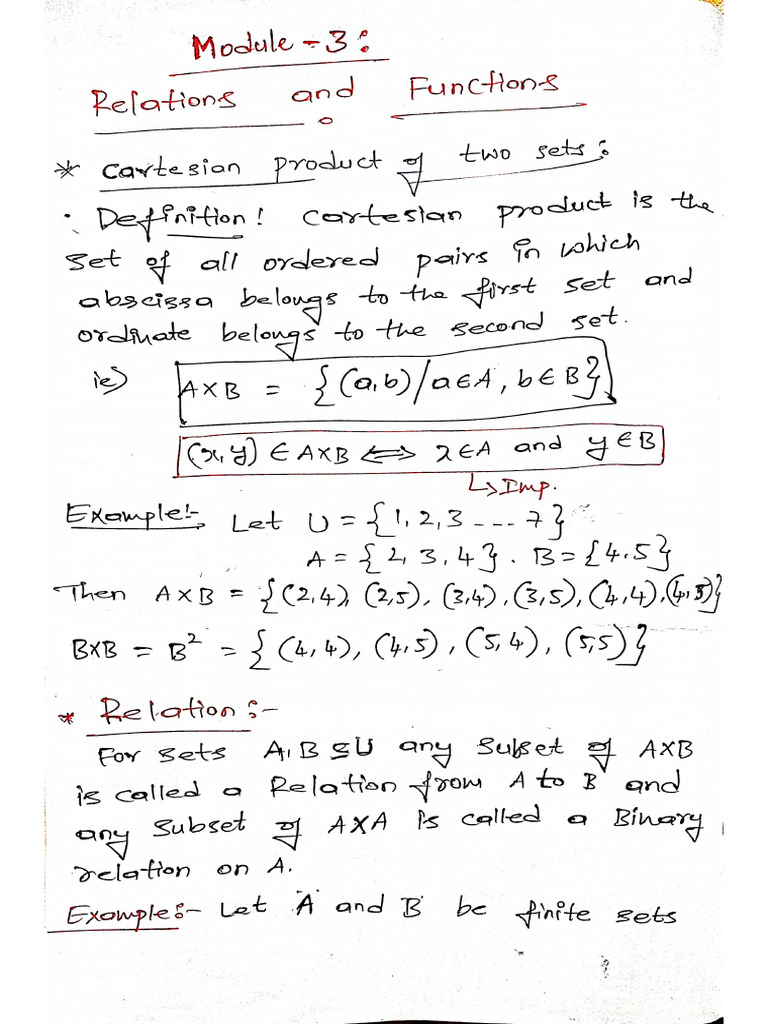 Module - 3:
Relations and Functions
* Cartesian product of two sets:
· Definition! Cartesian product is the
set of all ordered pairs in which
abscissa belongs to the first set and
ordinate belongs to the second set.
ie) A×B = {(a,b)/a∈A, b∈B}
(x,y) ∈ A×B ⟺ x∈A and y∈B
↳Imp.
Example:- Let U = {1,2,3 ---- 7}
A = {2,3,4}. B = {4,5}
Then A×B = {(2,4), (2,5), (3,4), (3,5), (4,4), (4,5)}
B×B = B² = {(4,4), (4,5), (5,4), (5,5)}
* Relation:-
For sets A,B ⊆U any subset of A×B
is called a Relation from A to B and
any subset of A×A is called a Binary
relation on A.
Example:- Let A and B be finite sets